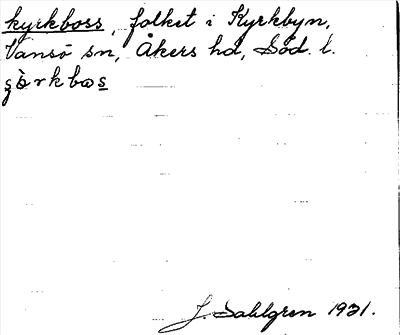 kyrkboss, folket i Kyrkbyn,
Vansö sn, Åkers hd, Söd. l.
J. Sahlgren 1931.